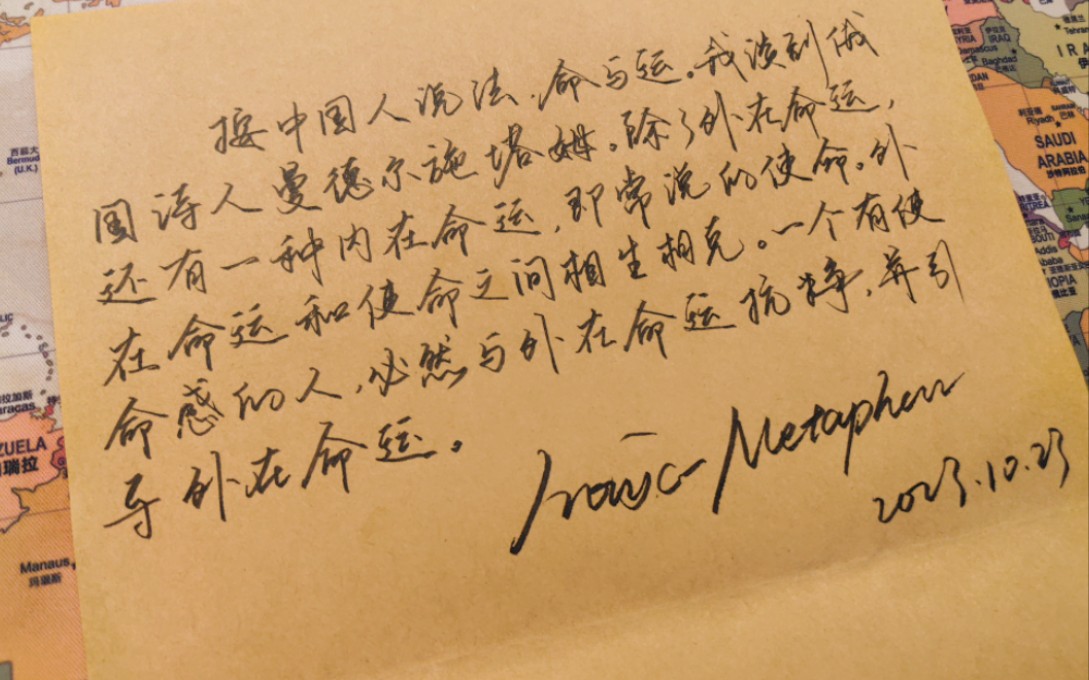 按中国人说法,命与运。我谈到俄
国诗人曼德尔施塔姆。除了外在命运,
还有一种内在命运,即常说的使命。外
在命运和使命之间相生相克。一个有使
命感的人,必然与外在命运抗争,并引
导外在命运。
2023.10.23
西超大
Bermud
(U.K.)
aracas
ZUELA
瑞拉
Manaus
玛瑙斯
SYRIA
IRAQ
Damascus
Baghdad
Tehran
IRA
DAN
利亚得
Riyadh
巴林
SAUDI
ARABIA
沙特阿拉伯
Addis
Ababa
IOPIA